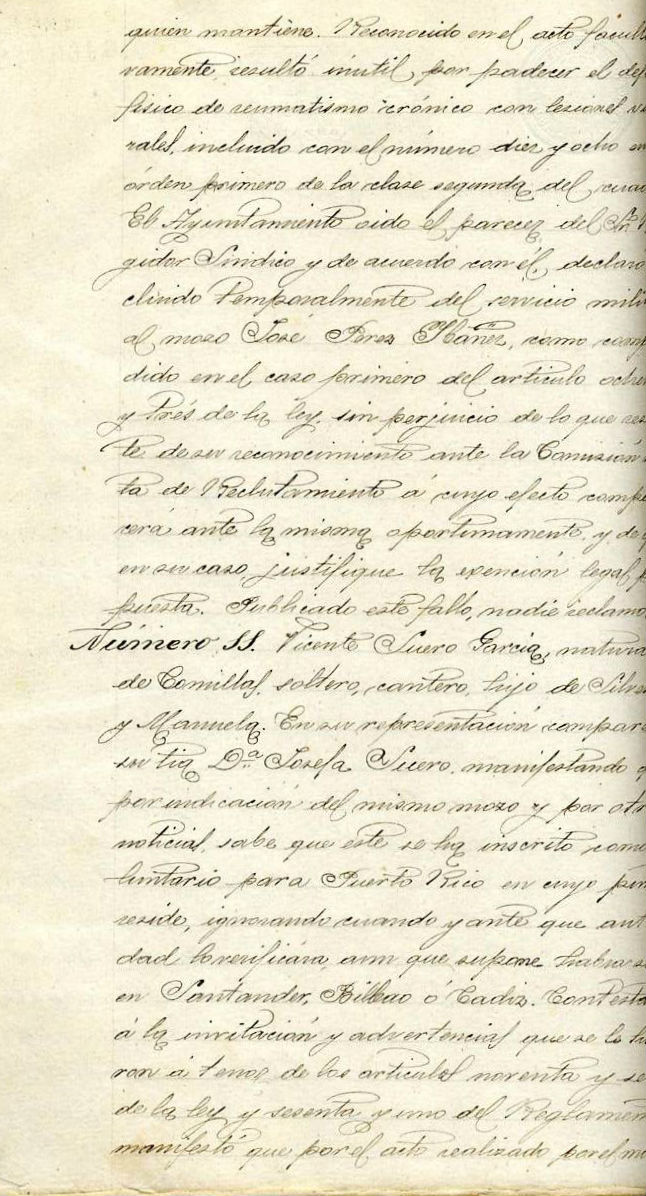 quien mantiene. Reconocido en el acto facult
vamente, resultó inútil, por padecer el def
físico de reumatismo crónico con lesiones v
rales, incluido con el número diez y ocho en
órden primero de la clase segunda del cuad
El Ayuntamiento oido el parecer del Sr.
gidor Síndico y de acuerdo con él, declaró
cluido temporalmente del servicio mili
al mozo José Perez Ybáñez, como comp
dido en el caso primero del articulo oche
y trés de la ley, sin perjuicio de lo que res
te de su reconocimiento ante la Comisión
ta de Reclutamiento á cuyo efecto compa
cerá ante la misma oportunamente, y de q
en su caso, justifique la exención legal, p
puesta. Publicado este fallo, nadie reclamó
Número 11. Vicente Suero Garcia, natura
de Comillas, soltero, cantero, hijo de Silve
y Manuela. En su representación compare
su tia D.ª Josefa Suero, manifestando q
por indicación del mismo mozo y por otr
noticias, sabe que este se ha inscrito como
luntario para Puerto Rico en cuyo pun
reside, ignorando cuando y ante que aut
dad lo verificára, aun que supone habrá s
en Santander, Bilbao ó Cadiz. Contesta
á la invitación y advertencias que se le hi
ron á tenor de los articulos noventa y se
de la ley y sesenta y uno del Reglamen
manifestó que por el acto realizado por el mo